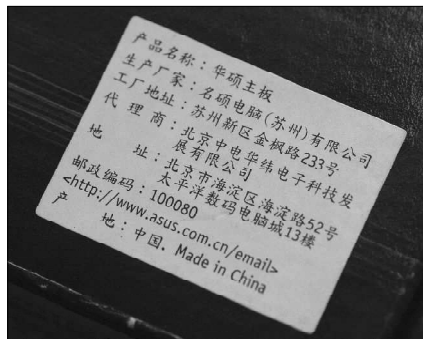 产品名称：华硕主板
生产厂家：名硕电脑(苏州)有限公司
工厂地址：苏州新区金枫路233号
代理商：北京中电华纬电子科技发
展有限公司
地址：北京市海淀区海淀路52号
太平洋数码电脑城13楼
邮政编码：100080
<http://www.asus.com.cn/email>
产地：中国．Made in China